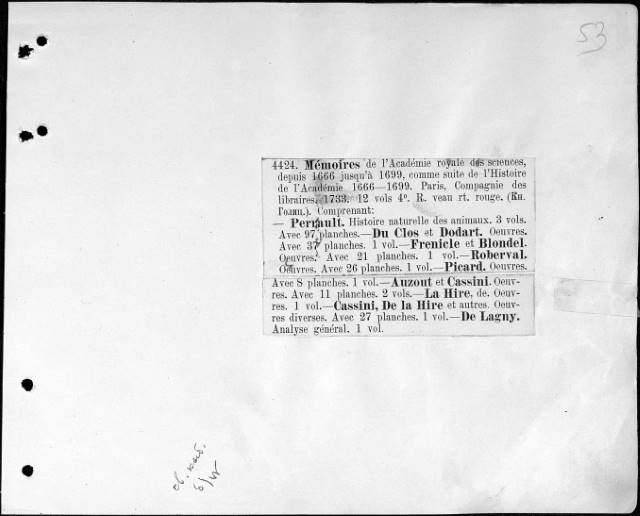 53
4424. Mémoires de l'Académie royale des sciences,
depuis 1666 jusqu'à 1699, comme suite de l'Histoire
de l'Académie 1666—1699. Paris, Compagnie des
libraires, 1733. 12 vols 4º. R. veau rt. rouge. (Кн.
Голиц.). Comprenant:
— Perrault. Histoire naturelle des animaux. 3 vols.
Avec 97 planches.—Du Clos et Dodart. Oeuvres.
Avec 37 planches. 1 vol.—Frenicle et Blondel.
Oeuvres. Avec 21 planches. 1 vol.—Roberval.
Oeuvres. Avec 26 planches. 1 vol.—Picard. Oeuvres.
Avec 8 planches. 1 vol.—Auzout et Cassini. Oeuv-
res. Avec 11 planches. 2 vols.—La Hire, de. Oeuv-
res. 1 vol.—Cassini, De la Hire et autres. Oeuv-
res diverses. Avec 27 planches. 1 vol.—De Lagny.
Analyse général. 1 vol.